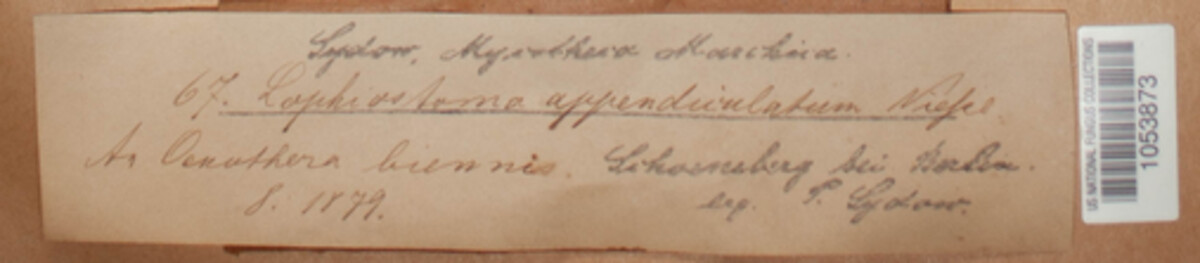 Sydow, Mycotheca Marchica.
67. Lophiostoma appendiculatum Niessl.
An Oenothera biennis. Schoeneberg bei Berlin.
8. 1879. leg. P. Sydow.
US NATIONAL FUNGUS COLLECTIONS
1053873